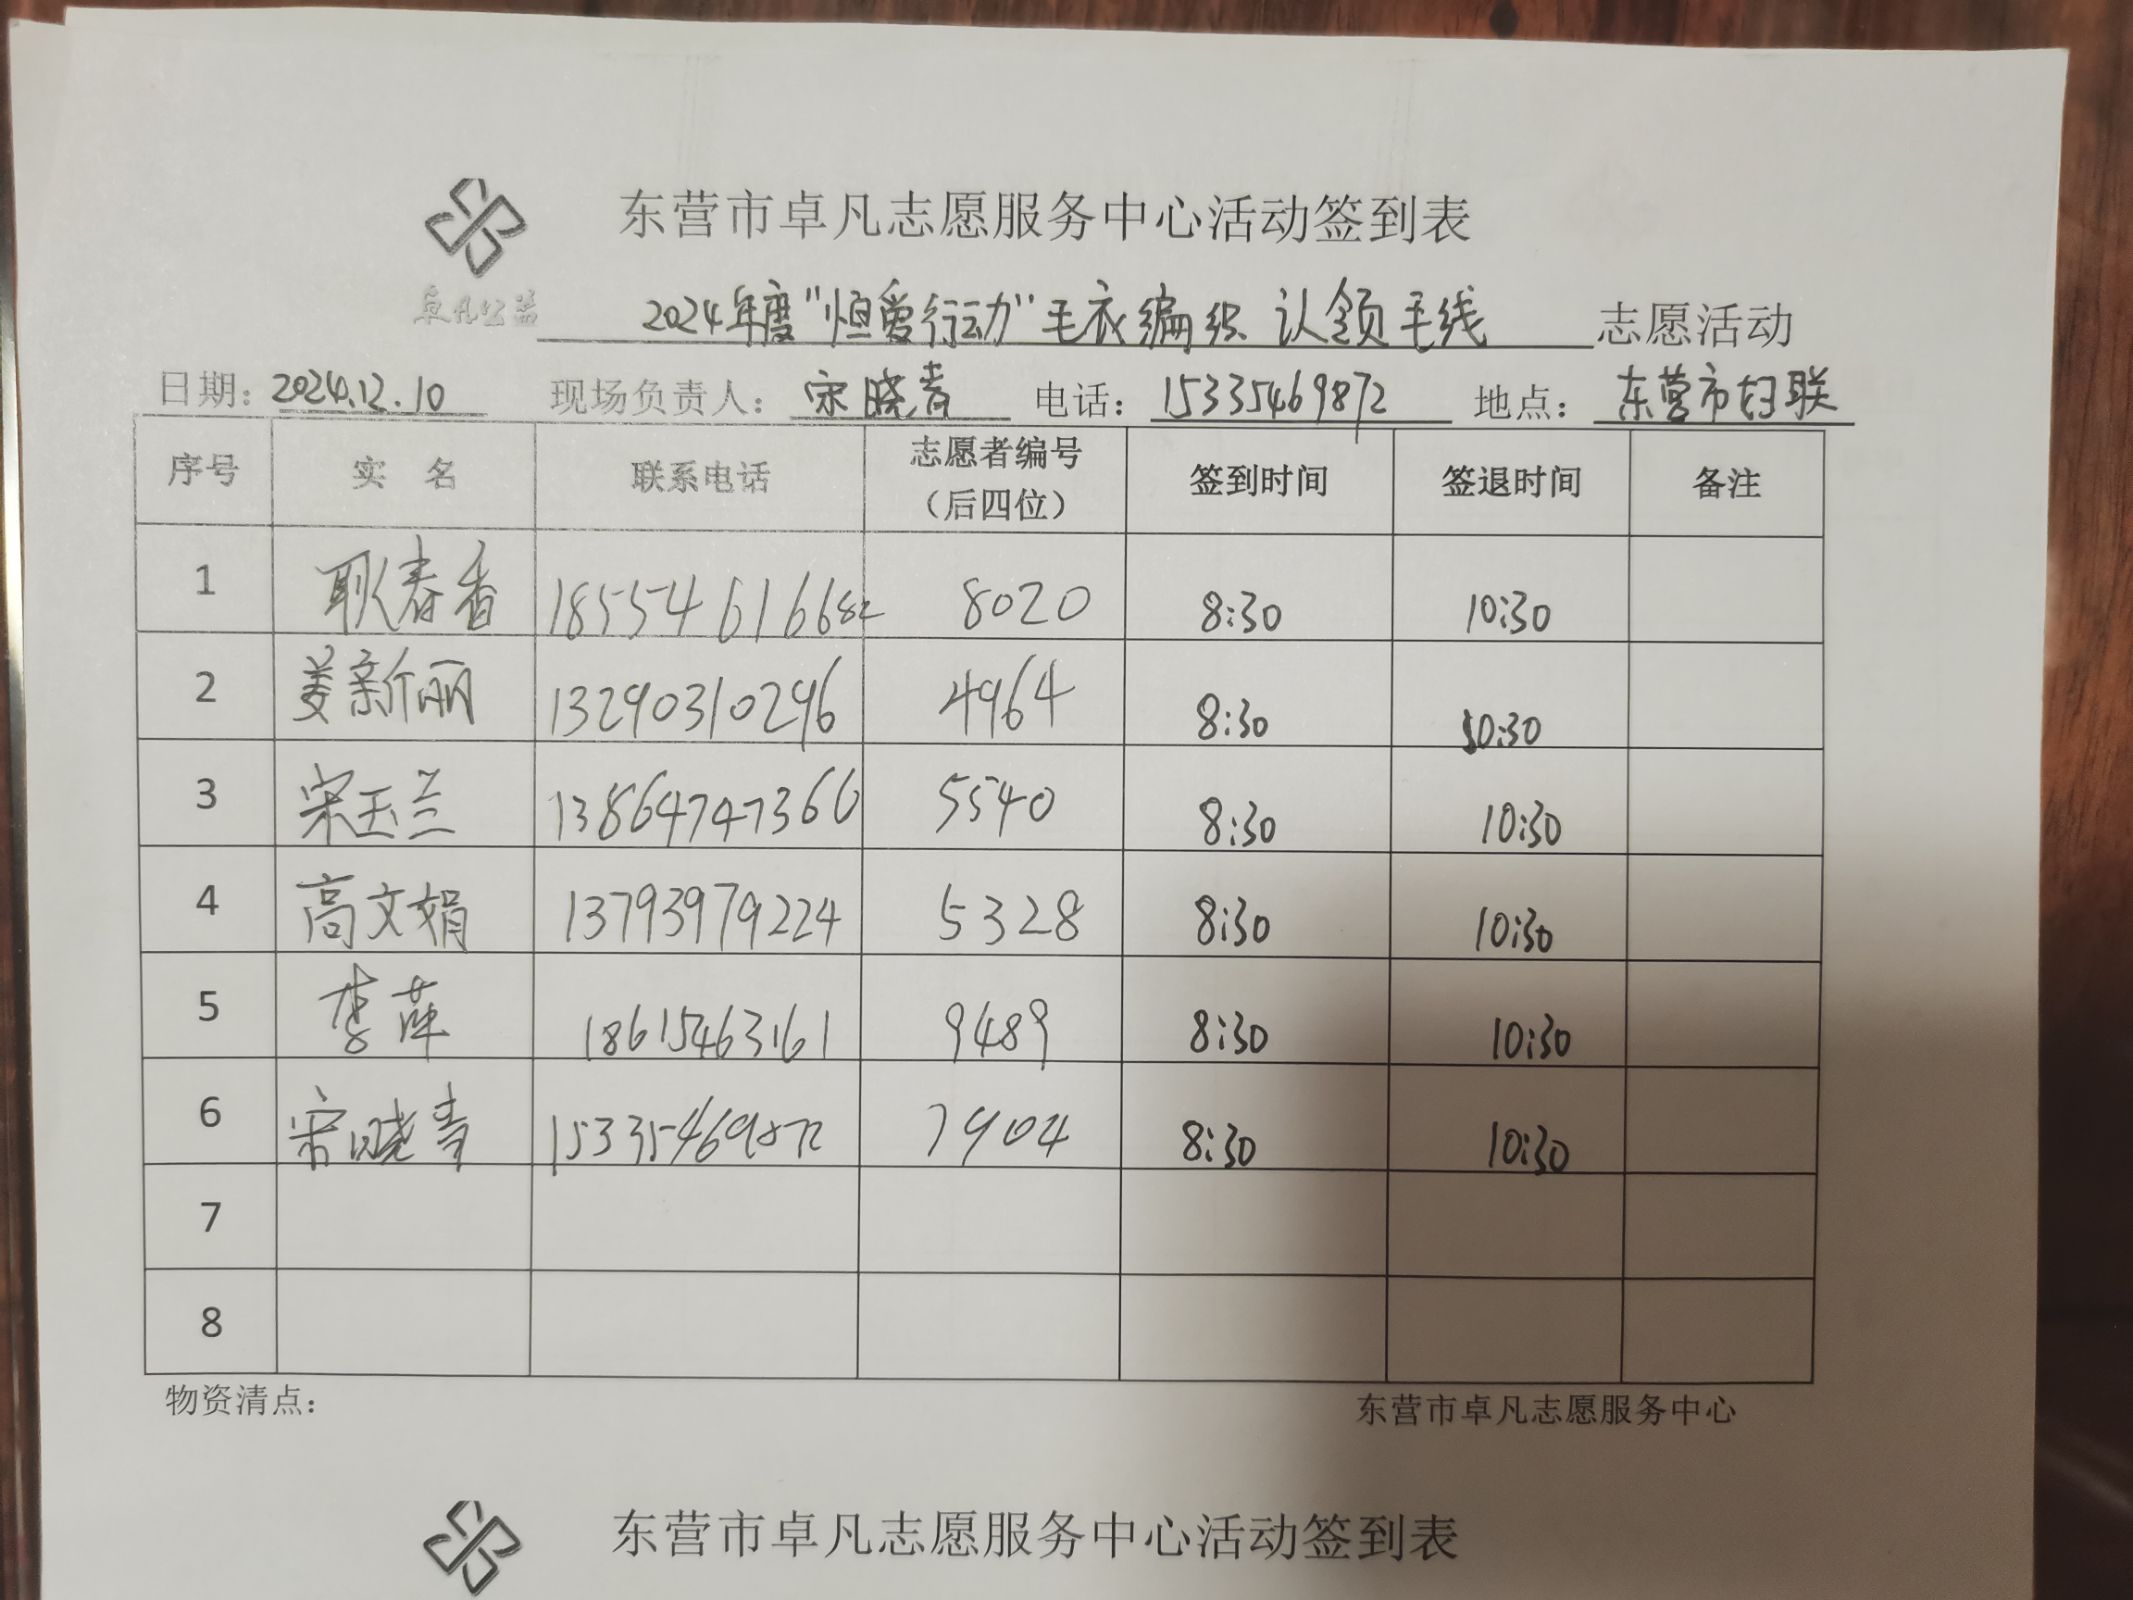 东营市卓凡志愿服务中心活动签到表
卓凡公益
2024年度"恒爱行动"毛衣编织 认领毛线 志愿活动
日期：2024.12.10 现场负责人：宋晓青 电话：15335469872 地点：东营市妇联
序号 实 名 联系电话 志愿者编号（后四位） 签到时间 签退时间 备注
1 耿春香 18554616682 8020 8:30 10:30
2 姜新丽 13290310296 4964 8:30 10:30
3 宋玉兰 13864747366 5540 8:30 10:30
4 高文娟 13793979224 5328 8:30 10:30
5 李萍 18615463161 9489 8:30 10:30
6 宋晓青 15335469872 7904 8:30 10:30
7
8
物资清点： 东营市卓凡志愿服务中心
东营市卓凡志愿服务中心活动签到表